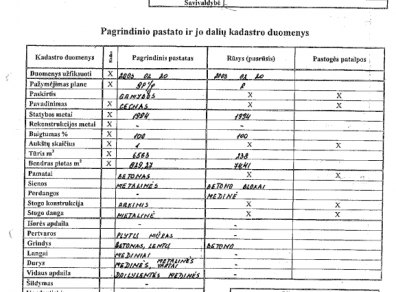 Savivaldybė
Pagrindinio pastato ir jo dalių kadastro duomenys
Kadastro duomenys Pagrindinis pastatas Rūsys (pusrūsis) Pastogės patalpos
Duomenys užfiksuoti X 2003 02 20 2003 02 20
Pažymėjimas plane X
Paskirtis X GAMYBOS X X
Pavadinimas X CECHAS X X
Statybos metai X 1984 1984
Rekonstrukcijos metai X - -
Baigtumas % X 100 100
Aukštų skaičius X 1 X X
Tūris m³ X 6565 238
Bendras plotas m² X
Pamatai BETONAS X X
Sienos METALINĖS BETONO BLOKAI
Perdangos - MEDINĖ
Stogo konstrukcija X X
Stogo danga METALINĖ X X
Išorės apdaila - -
Pertvaros PLYTŲ MŪRAS -
Grindys BETONAS, LENTŲ BETONO
Langai MEDINIAI -
Durys MEDINĖS, METALINĖS -
Vidaus apdaila MEDINĖS -
Šildymas - -